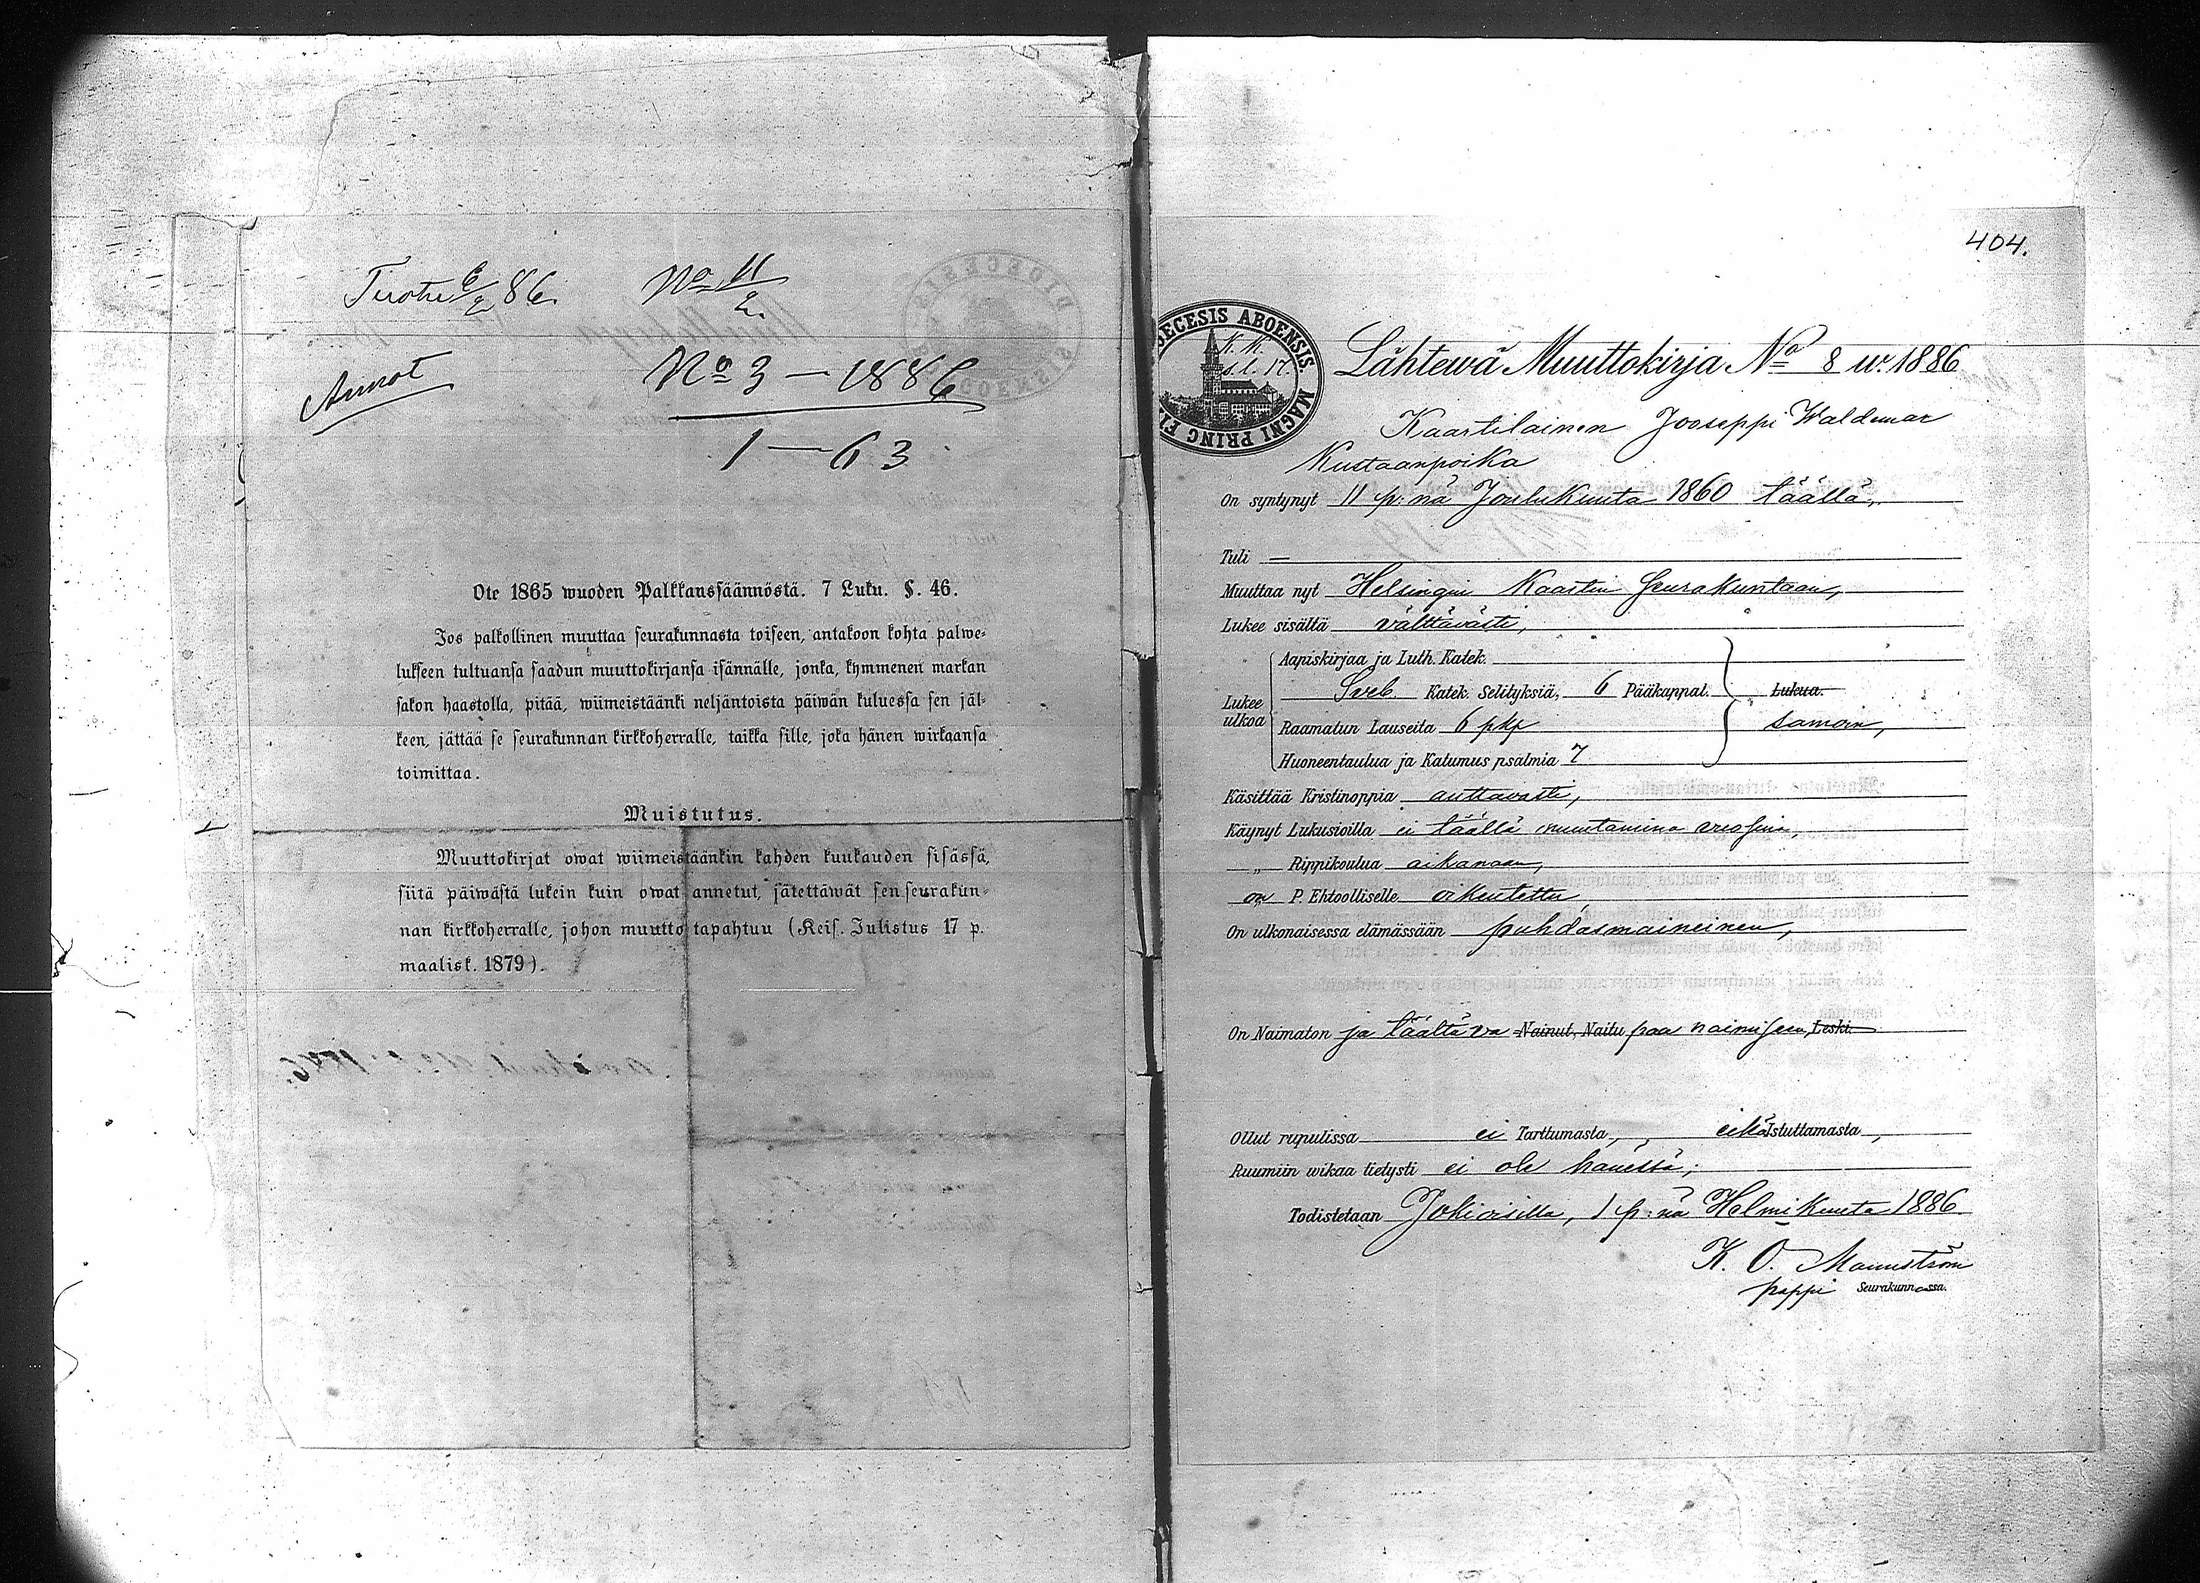 86. No 11/2.
Annot No 3 — 1886
1 — 63
Ote 1865 wuoden Palkkanssäännöstä. 7 Luku. §. 46.
Jos palkollinen muuttaa seurakunnasta toiseen, antakoon kohta palwe-
lukseen tultuansa saadun muuttokirjansa isännälle, jonka, kymmenen markan
sakon haastolla, pitää, wiimeistäänki neljäntoista päiwän kuluessa sen jäl-
keen, jättää se seurakunnan kirkkoherralle, taikka sille, joka hänen wirkaansa
toimittaa.
Muistutus.
Muuttokirjat owat wiimeistäänkin kahden kuukauden sisässä,
siitä päiwästä lukein kuin owat annetut, jätettäwät sen seurakun-
nan kirkkoherralle, johon muutto tapahtuu (Keis. Julistus 17 p.
maalisk. 1879).
404.
DIOECESIS ABOENSIS MAGNI PRINC FI
K. K.
s. l. 17.
Lähtewä Muuttokirja No 8 w. 1886
Kaartilainen Jooseppi Waldemar
Kustaanpoika
On syntynyt 11 p:nä Joulukuuta 1860 täällä,
Tuli —
Muuttaa nyt Helsingin Kaartin Seurakuntaan,
Lukee sisältä välttävästi,
Aapiskirjaa ja Luth. Katek.
Lukee ulkoa Sveb. Katek. Selityksiä, 6 Pääkappal. Lukua.
Raamatun Lauseita 6 pkp samoin,
Huoneentaulua ja Katumus psalmia 7
Käsittää Kristinoppia auttavasti,
Käynyt Lukusioilla ei täällä muutamina vuosina,
„ Rippikoulua aikanaan,
on P. Ehtoolliselle oikeutettu
On ulkonaisessa elämässään puhdasmaineinen,
On Naimaton ja täältä va Nainut, Naitu paa naimiseen, Leski.
Ollut rupulissa ei Tarttumasta, eikä Istuttamasta,
Ruumiin wikaa tietysti ei ole hänessä;
Todistetaan Jokioisilla, 1 p:nä Helmikuuta 1886.
K. O. Mannström
pappi Seurakunnassa.